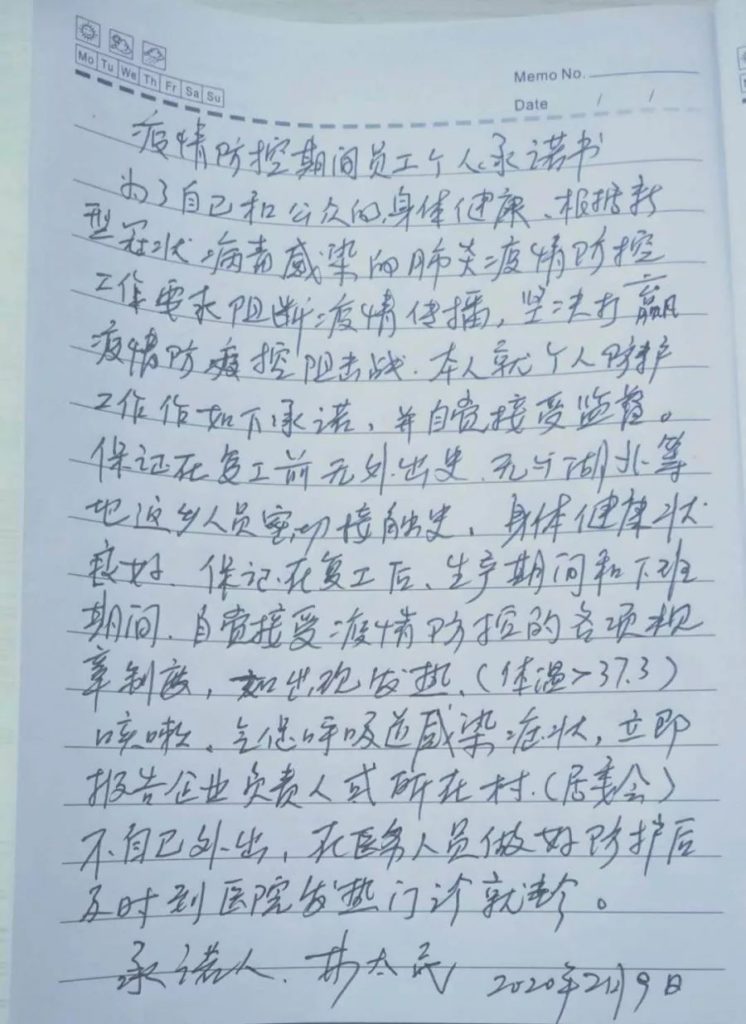 Mo Tu We Th Fr Sa Su
Memo No.
Date / /
疫情防控期间员工个人承诺书
为了自己和公众的身体健康、根据新
型冠状病毒感染的肺炎疫情防控
工作要求阻断疫情传播，坚决打赢
疫情防控阻击战.本人就个人防护
工作作如下承诺，并自觉接受监督。
保证在复工前无外出史.无与湖北等
地返乡人员密切接触史、身体健康状
良好.保证在复工后、生产期间和下班
期间.自觉接受疫情防控的各项规
章制度，如出现发热.（体温>37.3）
咳嗽、呼吸道感染症状，立即
报告企业负责人或所在村.（居委会）
不自己外出，在医务人员做好防护后
及时到医院发热门诊就诊。
承诺人. 2020年2月9日